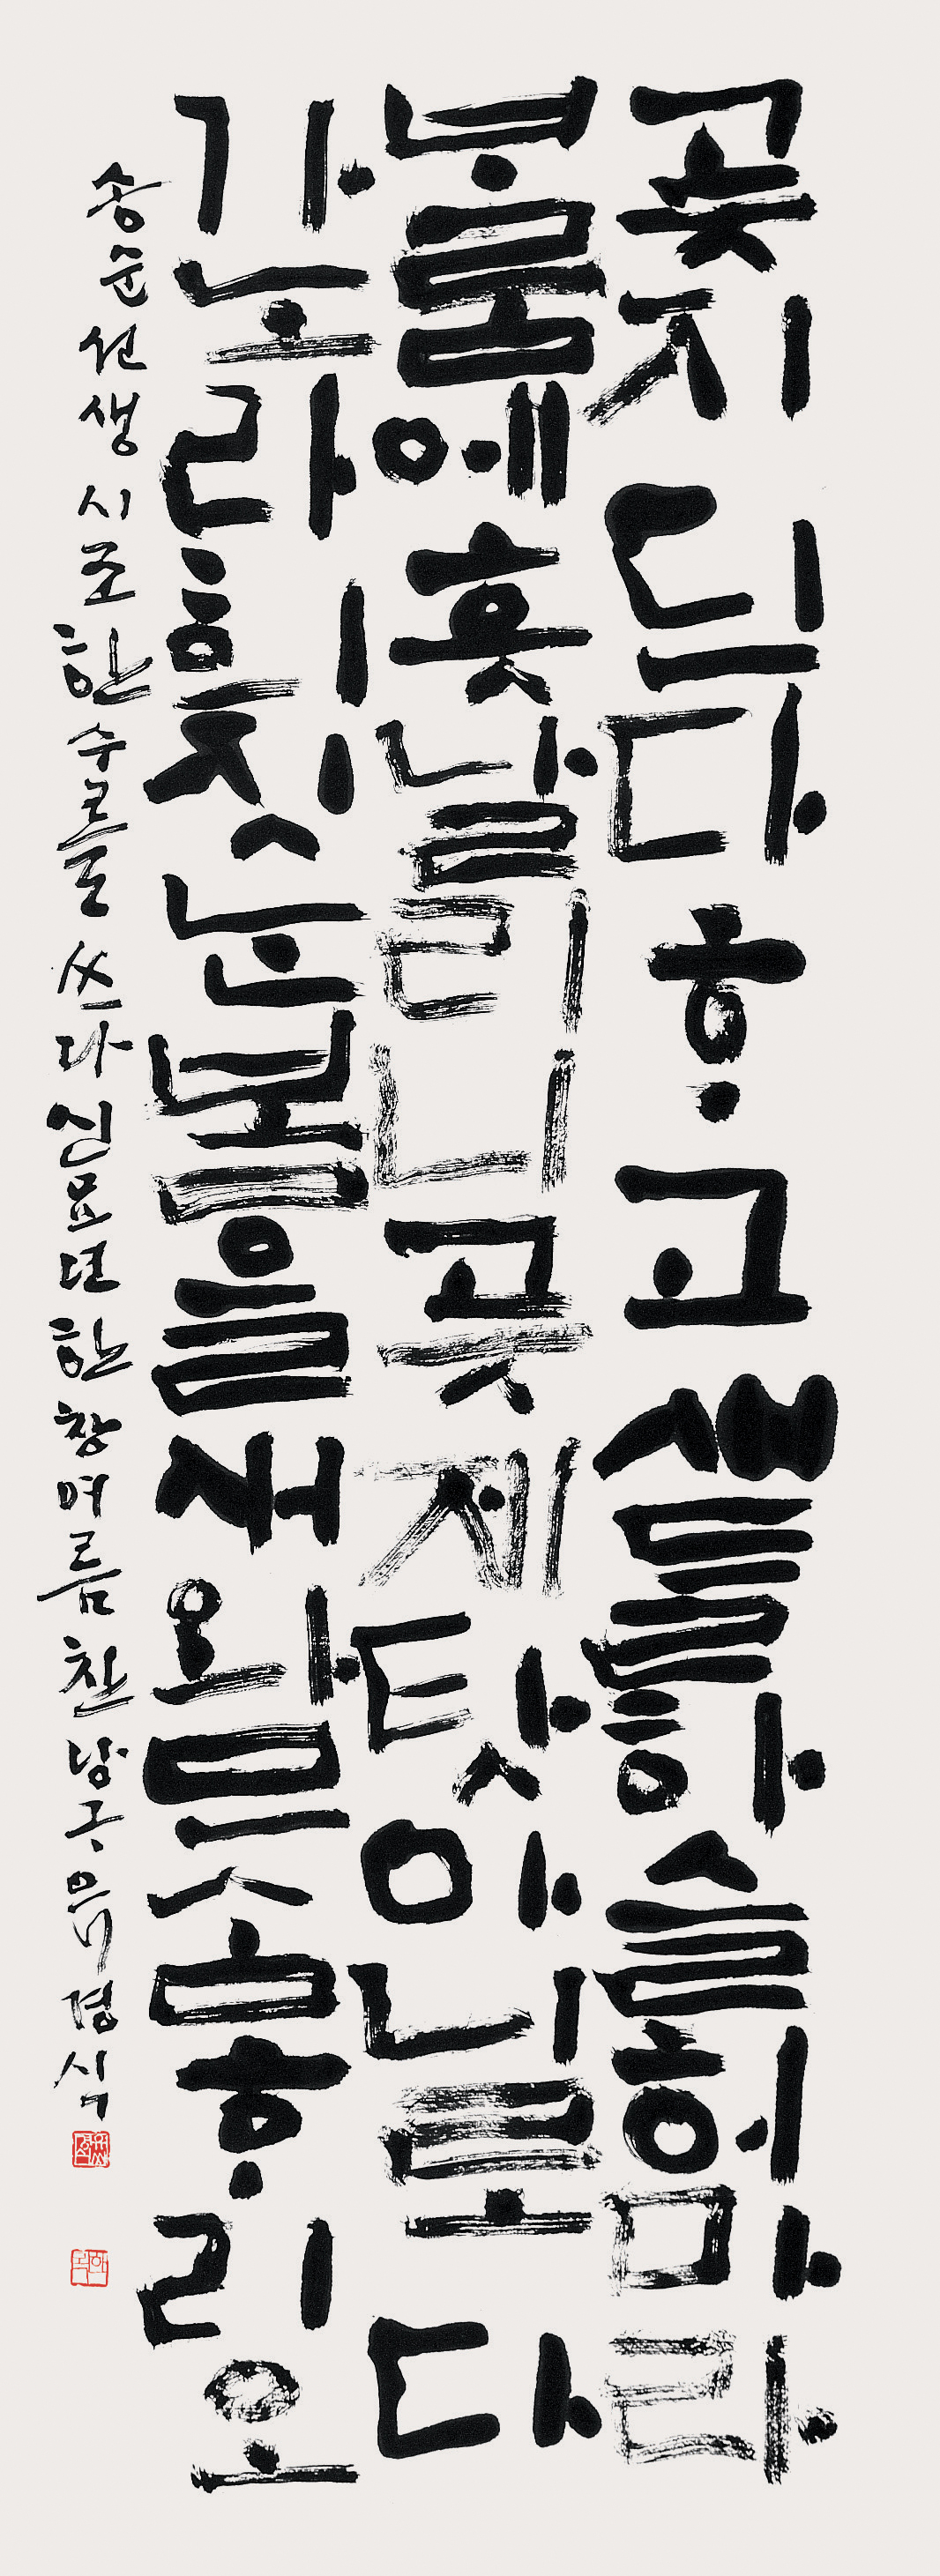 곶지 딘다 ᄒᆞ고 새들하 슬허마라
ᄇᆞᄅᆞᆷ에 흣날리니 곳제 탓 아니로다
가노라 희짓ᄂᆞᆫ 봄을 새와 므슴ᄒᆞ리오
송순 선생 시조 한 수를 쓰다 신묘년 한창 여름 경식